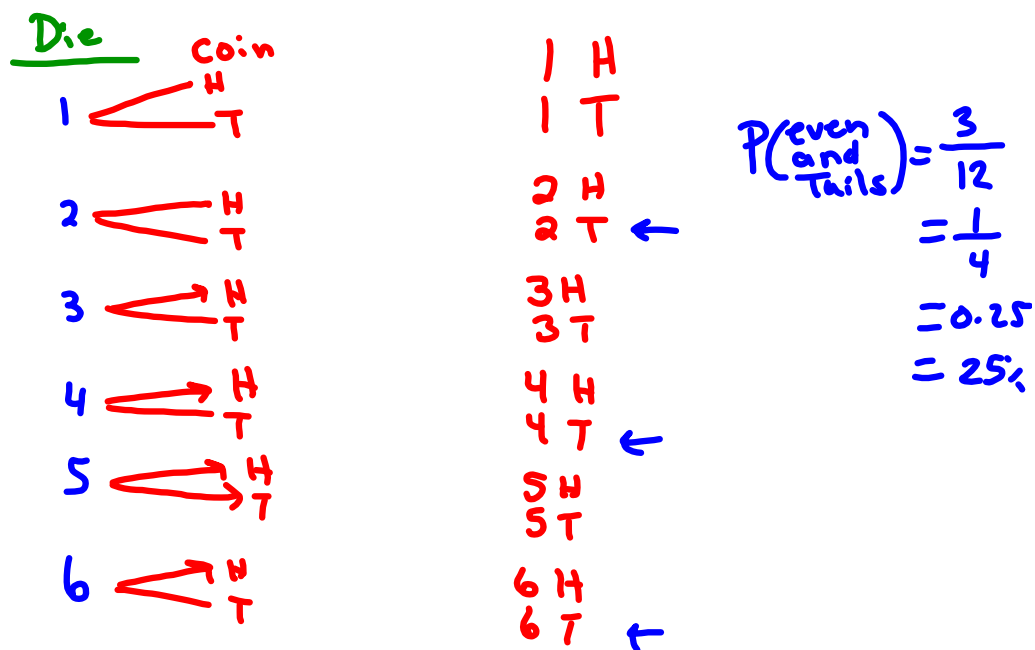 Die
Coin
1 H
T
2 H
T
3 H
T
4 H
T
5 H
T
6 H
T
1 H
1 T
2 H
2 T
3 H
3 T
4 H
4 T
5 H
5 T
6 H
6 T
P(even and Tails) = 3/12
= 1/4
= 0.25
= 25%